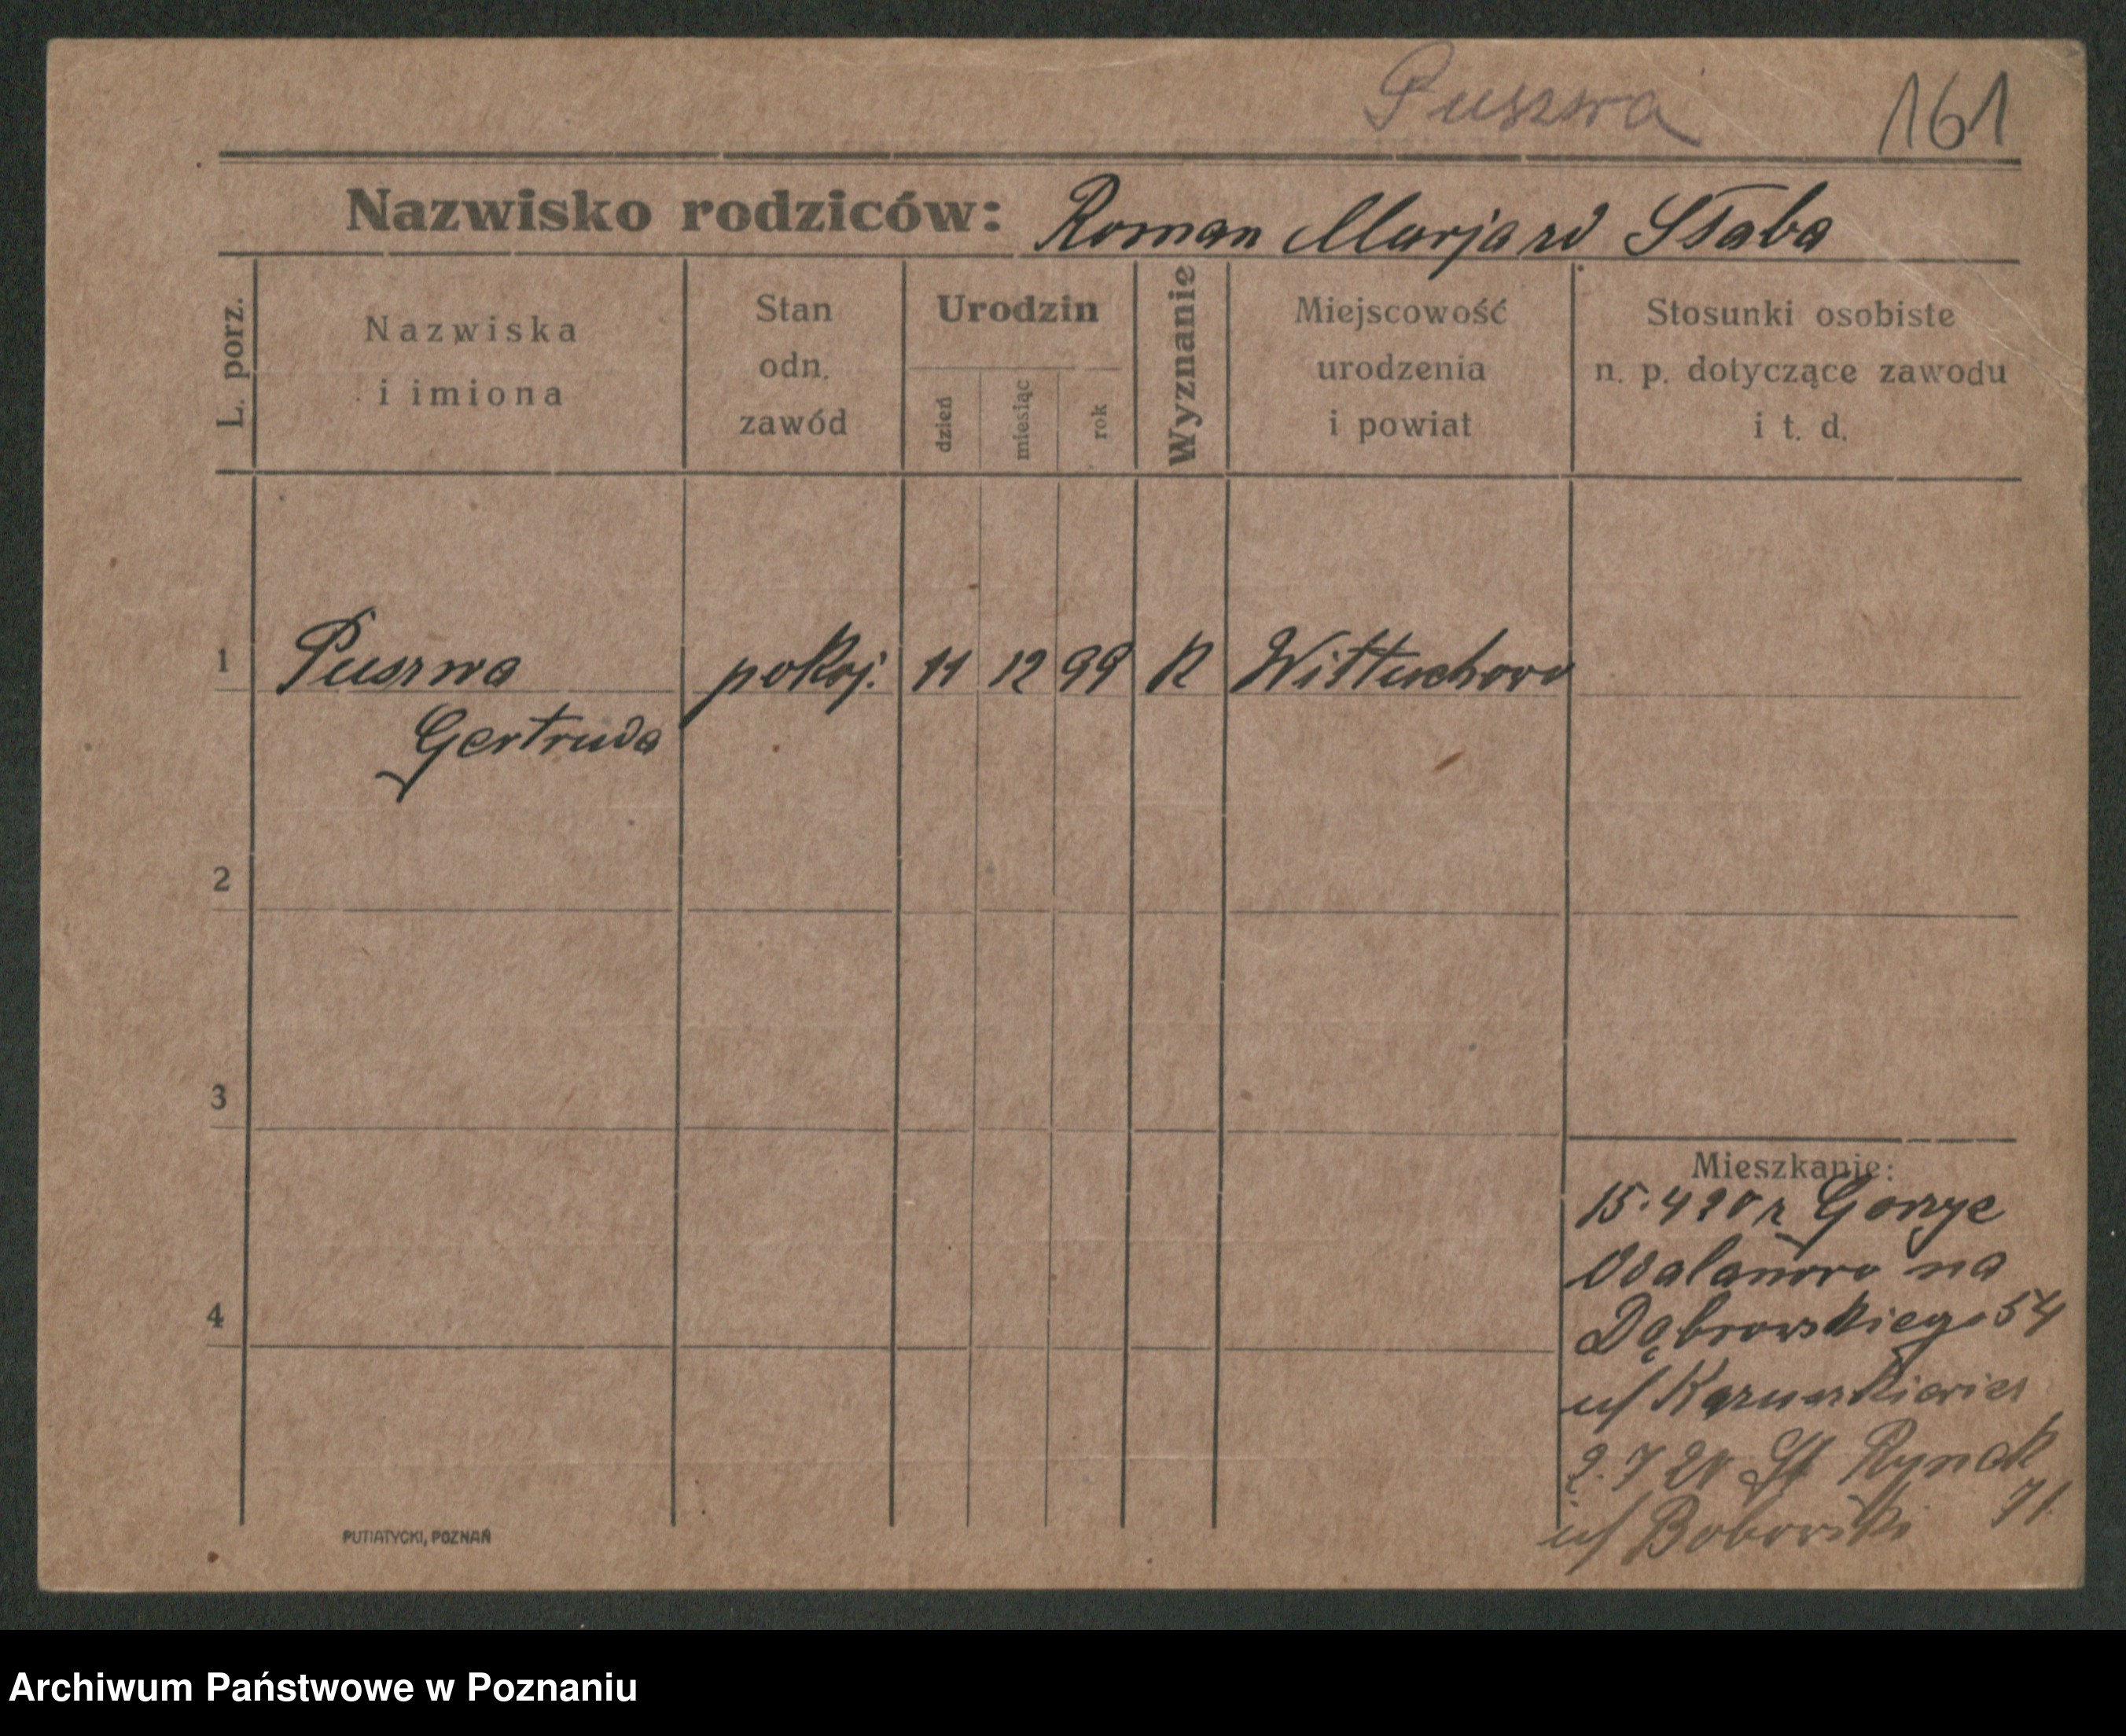 Puszwa 161
Nazwisko rodziców: Roman Marja zd Słaba
L. porz.
Nazwiska
i imiona
Stan
odn.
zawód
Urodzin
dzień
miesiąc
rok
Wyznanie
Miejscowość
urodzenia
i powiat
Stosunki osobiste
n. p. dotyczące zawodu
i t. d.
1 Puszwa pokoj. 11 12 99 K Wittuchowo
Gertruda
2
3
4
Mieszkanie:
15.4 20 z Gorzyc
na
Dąbrowskiego 54
u/
2.7 20 St Rynek
u/ Boborski 71
PUTIATYCKI, POZNAŃ
Archiwum Państwowe w Poznaniu